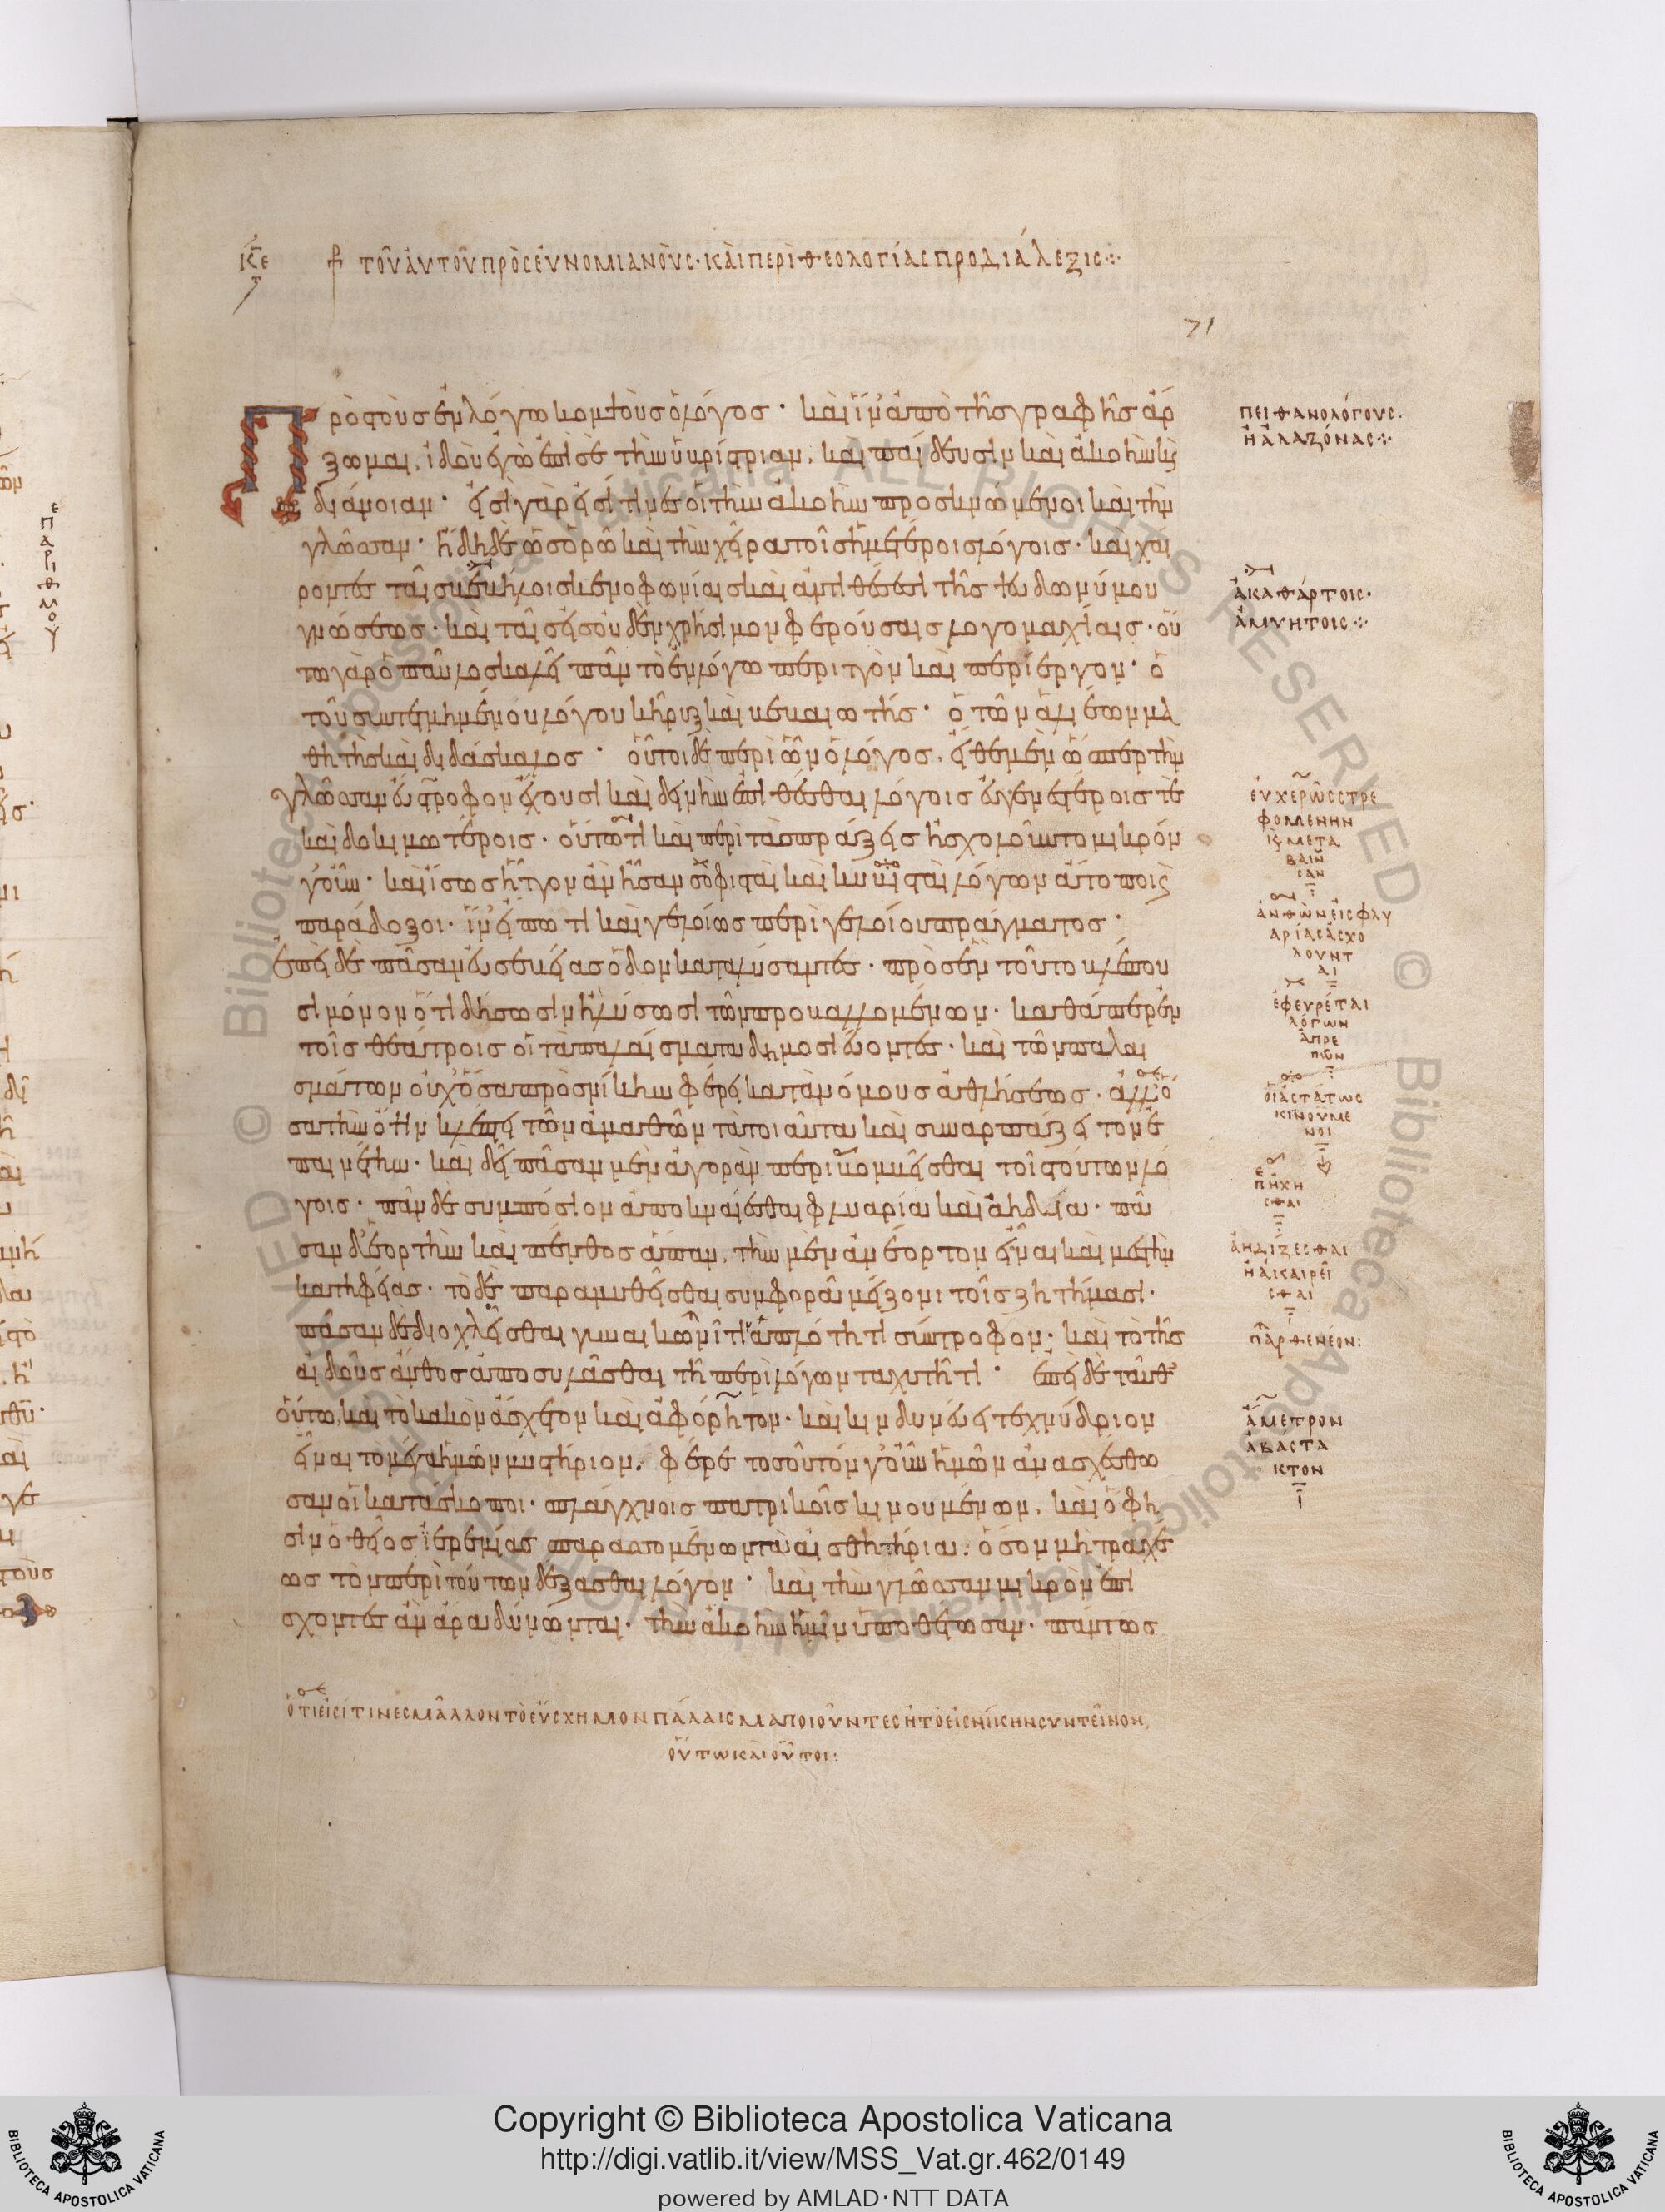 κε
τοῦ ἀυτοῦ πρὸς ἐυνομιανούς· καὶ περὶ θεολογίας προδιάλεξις
71
Πρὸς τοὺς ἐν λόγω κομψοὺς ὁ λόγος· καὶ ἵν' ἀπὸ τῆς γραφῆς ἄρ
ξωμαι, ἰδοὺ ἐγὼ ἐπὶ σὲ τὴν ὑβρίστριαν, καὶ παίδευσιν καὶ ἀκοὴν καὶ
διάνοιαν· εἰσὶ γὰρ εἰσί τινες οἱ τὴν ἀκοὴν προσκνώμενοι καὶ τὴν
γλῶσσαν· ἤδη δὲ ὡς ὁρῶ καὶ τὴν χεῖρα τοῖς ἡμετέροις λόγοις· καὶ χαί
ροντες ταῖς βεβήλοις κενοφωνίαις καὶ ἀντιθέσεσι τῆς ψευδωνύμου
γνώσεως· καὶ ταῖς εἰς οὐδὲν χρήσιμον φερούσαις λογομαχίαις· οὕ
τω γὰρ ὁ παῦλος καλεῖ πᾶν τὸ ἐν λόγω περιττὸν καὶ περίεργον· ὁ
τοῦ συντετμημένου λόγου κῆρυξ καὶ βεβαιωτής· ὁ τῶν ἁλιέων μα
θητὴς καὶ διδάσκαλος· οὗτοι δὲ περὶ ὧν ὁ λόγος, εἴθε μὲν ὥσπερ τὴν
γλῶσσαν εὔστροφον ἔχουσι καὶ δεινὴν ἐπιθέσθαι λόγοις εὐγενεστέροις τε
καὶ δοκιμωτέροις· οὕτω τι καὶ περὶ τὰς πράξεις ἠσχολοῦντο μικρὸν
γοῦν· καὶ ἴσως ἧττον ἂν ἦσαν σοφισταὶ καὶ κυβισταὶ λόγων ἄτοποι καὶ
παράδοξοι· ἵν' εἴπω τι καὶ γελοίως περὶ γελοίου πράγματος·
ἐπεὶ δὲ πᾶσαν εὐσεβείας ὁδὸν καταλύσαντες· πρὸς ἓν τοῦτο βλέπου
σι μόνον ὅ τι δήσωσιν ἢ λύσωσι τῶν προβαλλομένων· καθάπερ ἐν
τοῖς θεάτροις οἱ τὰ παλαίσματα δημοσιεύοντες· καὶ τῶν παλαι
σμάτων οὐχ ὅσα πρὸς νίκην φέρει κατὰ νόμους ἀθλήσεως· ἀλλ' ὅ
σα τὴν ὄψιν κλέπτει τῶν ἀμαθῶν τὰ τοιαῦτα καὶ συναρπάζει τὸν ἔ
παινέτην· καὶ δεῖ πᾶσαν μὲν ἀγορὰν περιβομβεῖσθαι τοῖς τούτων λό
γοις· πᾶν δὲ συμπόσιον ἀποκναίεσθαι φλυαρία καὶ ἀηδία· πᾶ
σαν δ' ἑορτὴν καὶ πένθος ἅπαν, τὴν μὲν ἀνέορτον εἶναι καὶ μεστὴν
κατηφείας· τὸ δὲ παραμυθεῖσθαι συμφορᾶ μείζονι τοῖς ζητήμασι·
πᾶσαν δὲ διοχλεῖσθαι γυναικωνῖτιν ἁπλότητι σύντροφον· καὶ τὸ τῆς
αἰδοῦς ἄνθος ἀποσυλᾶσθαι τῆ περὶ λόγων ταχύτητι· ἐπεὶ δὲ ταῦθ'
οὕτω, καὶ τὸ κακὸν ἄσχετον καὶ ἀφόρητον· καὶ κινδυνεύει τεχνύδριον
εἶναι τὸ μέγα ἡμῶν μυστήριον. φέρε τοσοῦτον γοῦν ἡμῶν ἀνασχέσθω
σαν οἱ κατάσκοποι· σπλάγχνοις πατρικοῖς κινουμένων, καὶ ὅ φη
σιν ὁ θεῖος ἱερεμίας σπαρασσομένων τὰ αἰσθητήρια· ὅσον μὴ τραχέ
ως τὸν περὶ τούτων δέξασθαι λόγον· καὶ τὴν γλῶσσαν μικρὸν ἐπι
σχόντες ἂν ἄρα δύνωνται· τὴν ἀκοὴν ἡμῖν ὑποθέτωσαν· πάντως
πειθανολόγους.
ἢ ἀλαζόνας
ἀκαθάρτοις·
ἀμυήτοις
ἐυχερῶς στρε
φομένην
κὶ μετα
βαίν
σαν
ἀνθ' ὧν εἰς φλυ
αρίας ἀσχο
λοῦντ
αι
ἐφευρέται
λόγων
ἀπρε
πῶν
ἀιαστάτως
κινούμε
νοι
πηχῆ
σθαι
ἀηδίζεσθαι
ἢ ἀκαιρεῖ
σθαι
παρθενεόν:
ἄμετρον
ἀβαστα
κτον
ὅτι εἰσί τινες μᾶλλον τὸ εὔσχημον πάλαισμα ποιοῦντες ἢ τὸ εἰς νίκην συντεῖνον,
οὕτω καὶ οὗτοι:
Copyright © Biblioteca Apostolica Vaticana
http://digi.vatlib.it/view/MSS_Vat.gr.462/0149
powered by AMLAD·NTT DATA